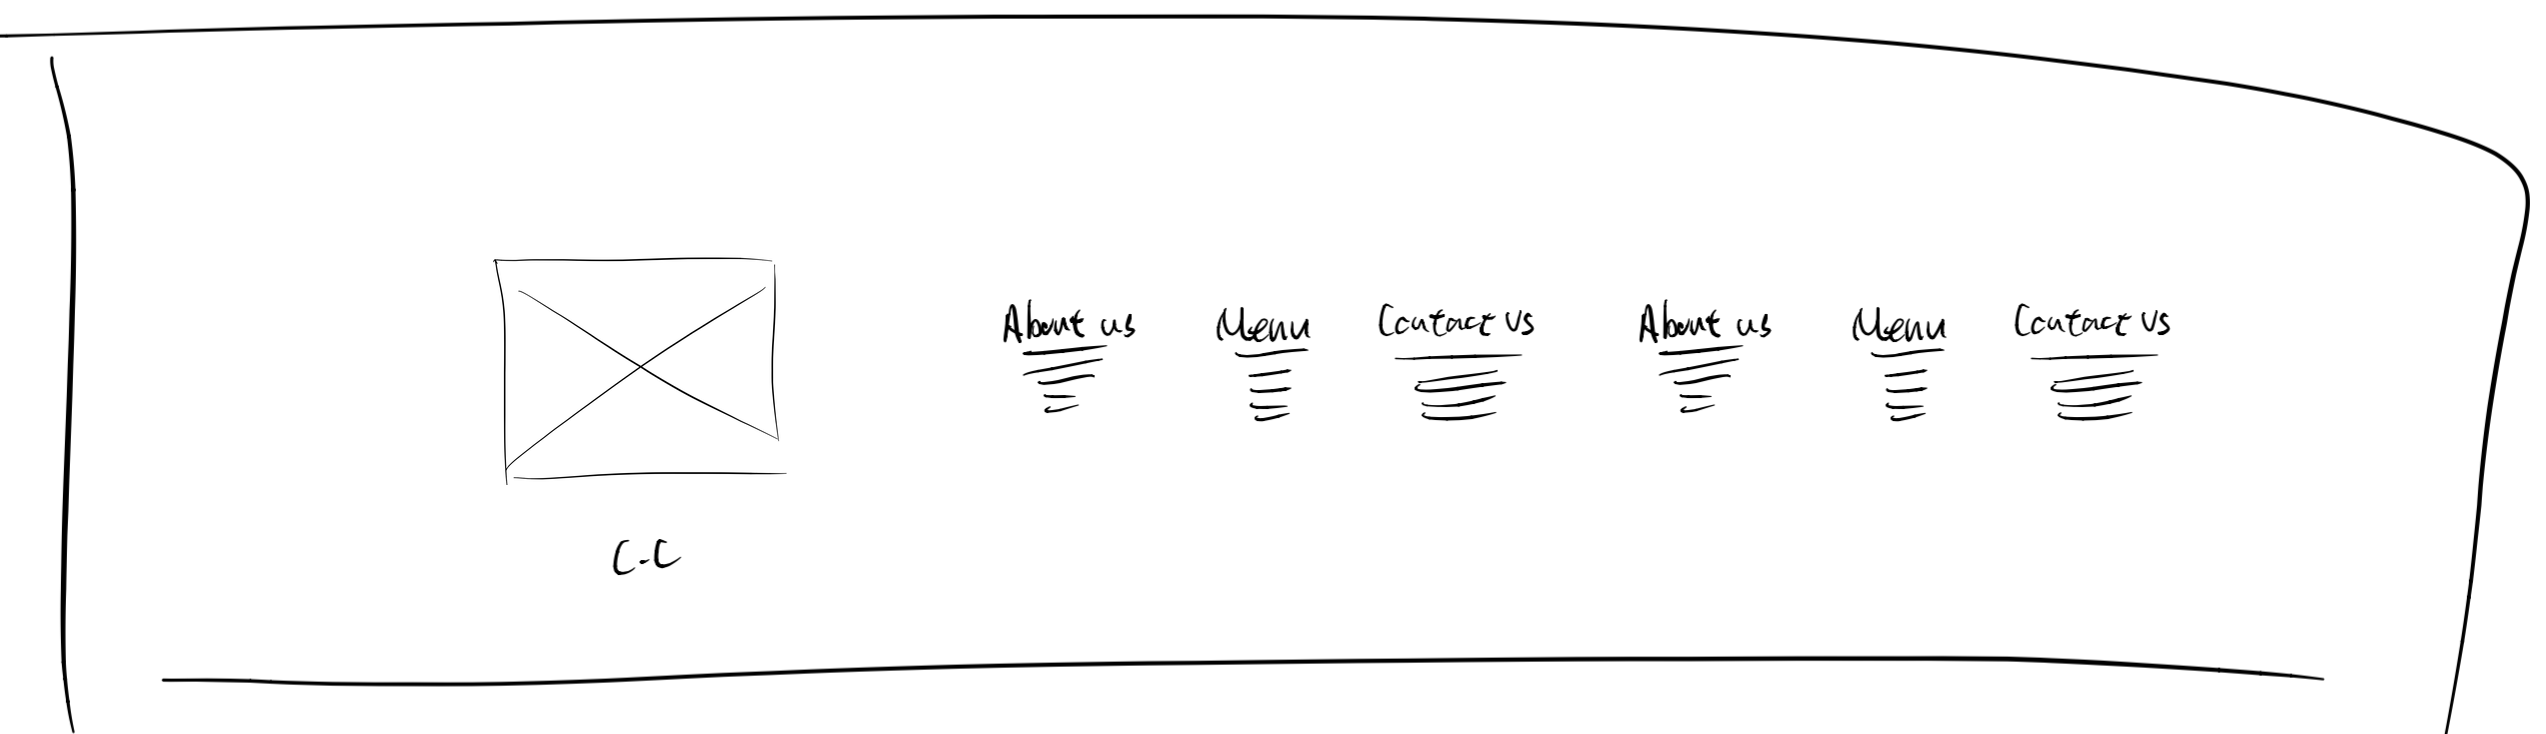 About us Menu Contact us About us Menu Contact us
C-C